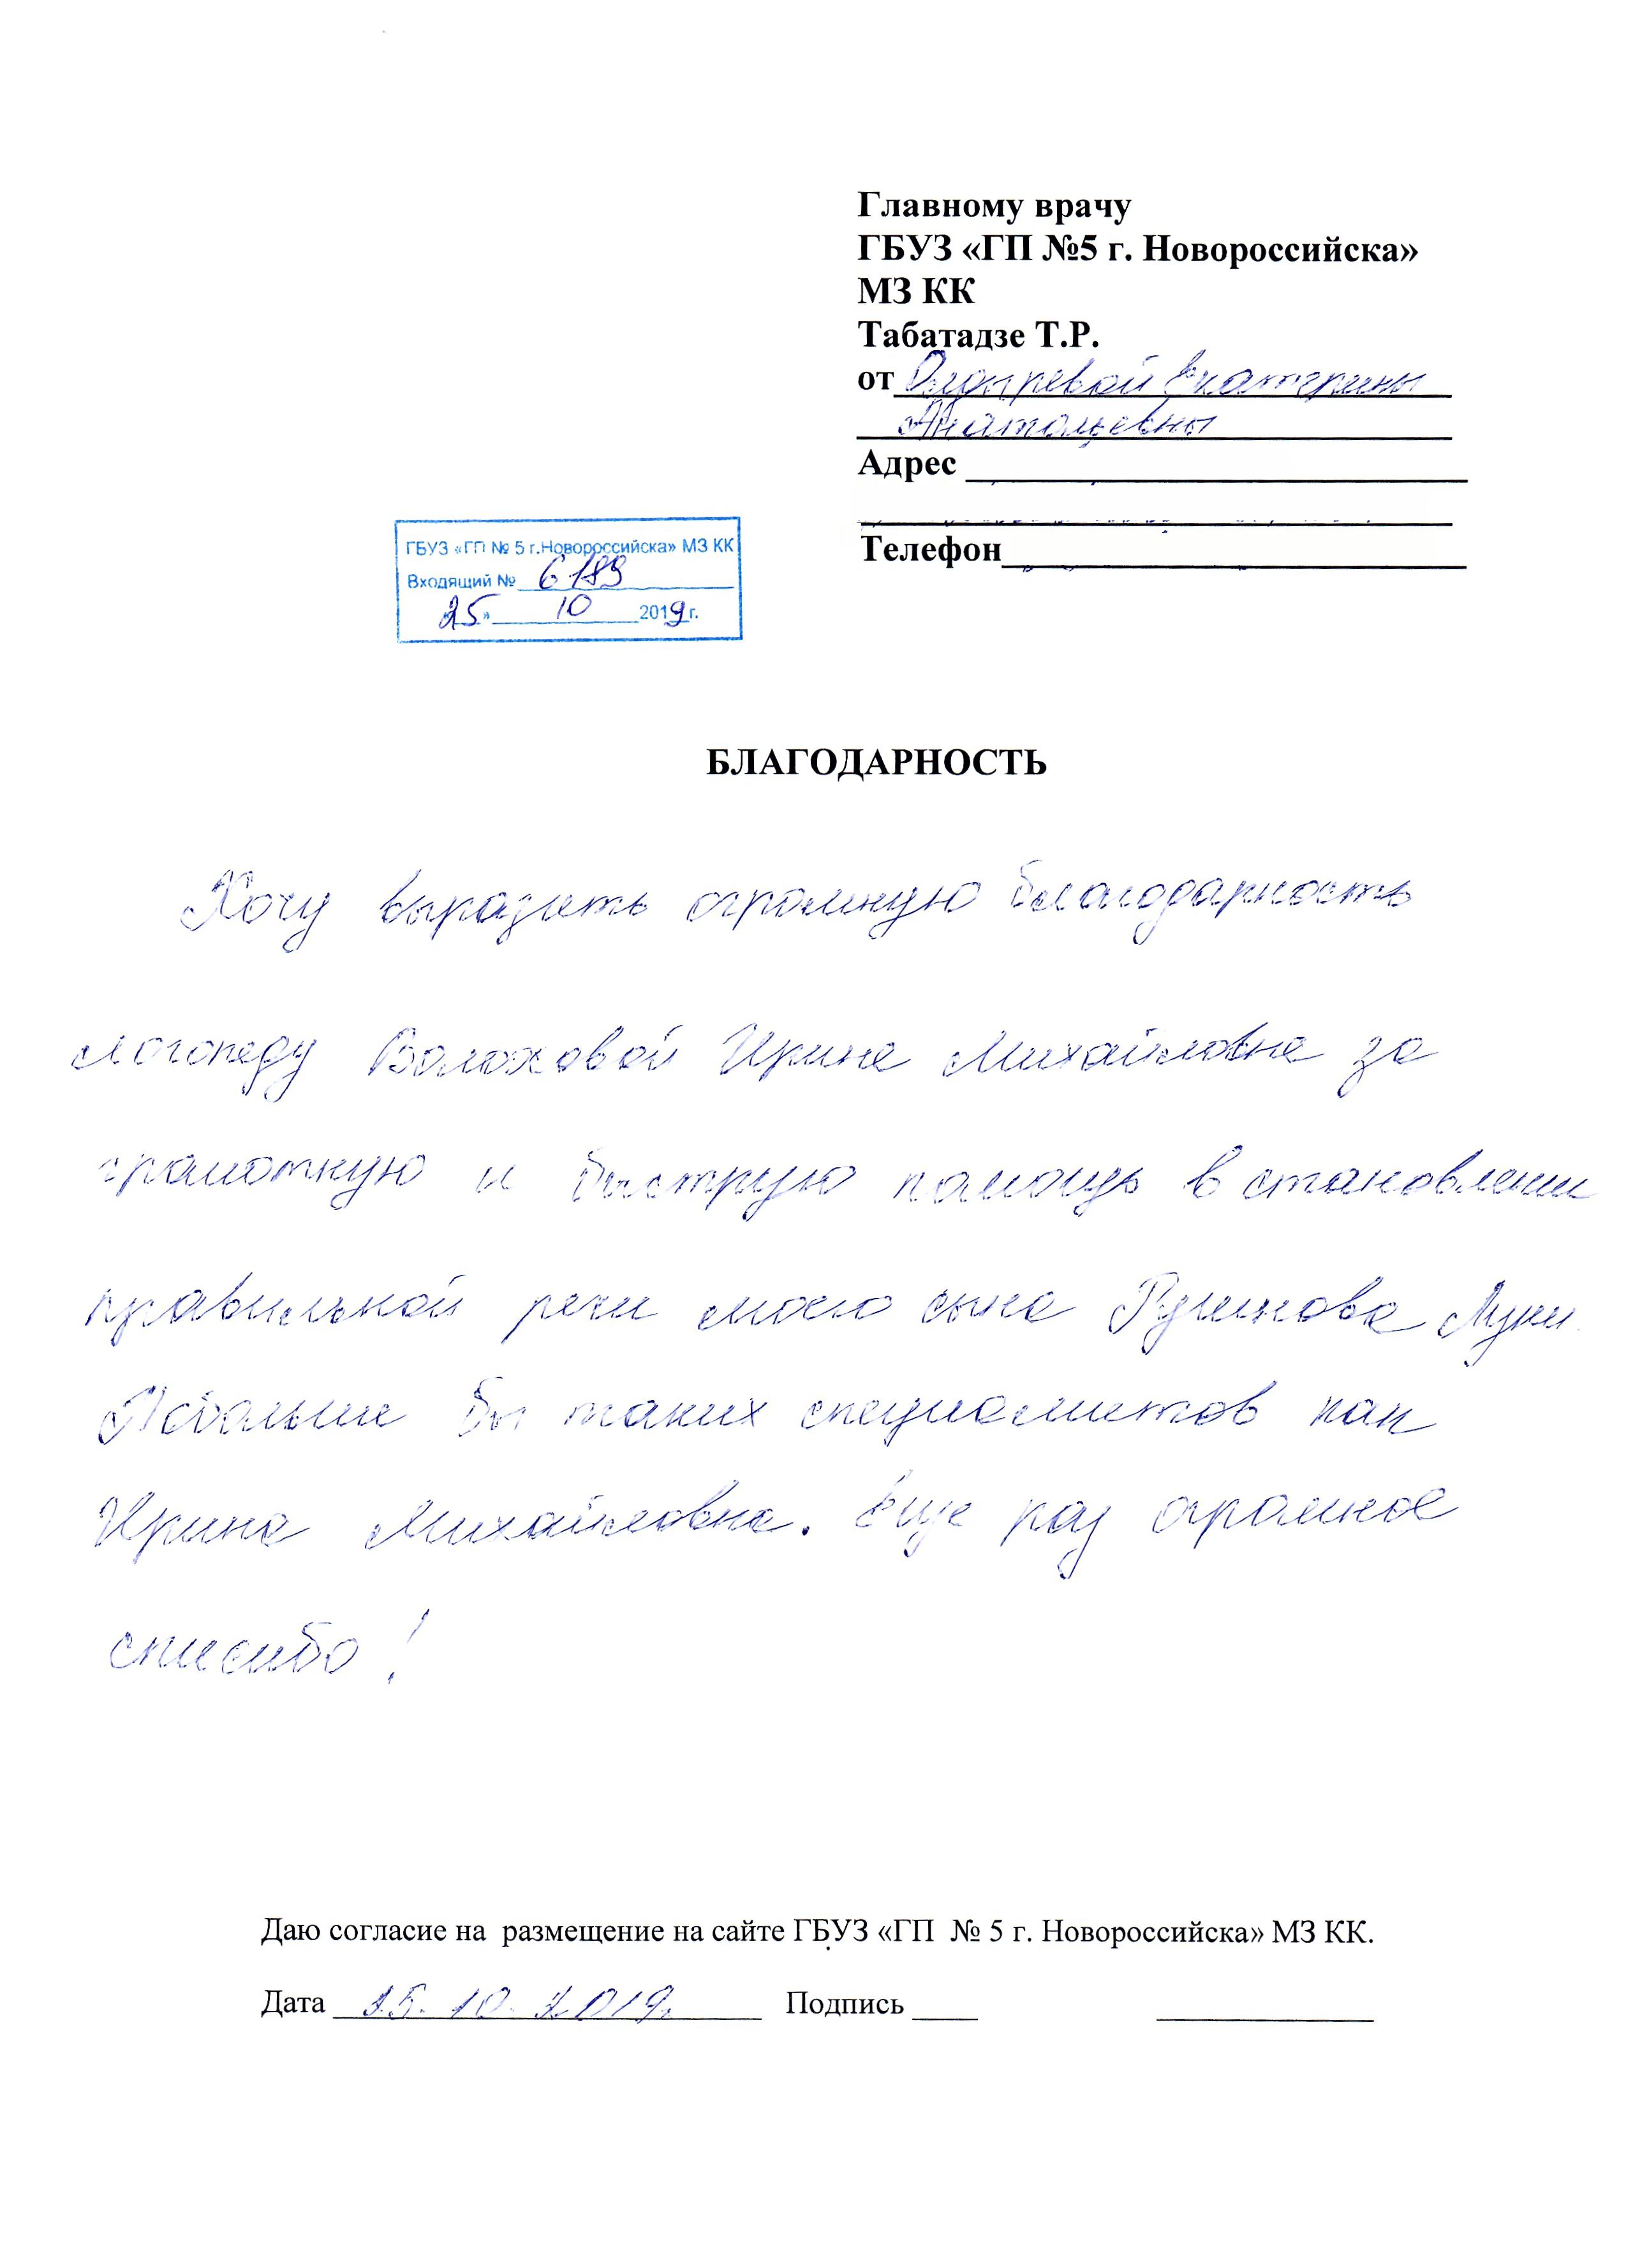 Главному врачу
ГБУЗ «ГП №5 г. Новороссийска»
МЗ КК
Табатадзе Т.Р.
от Екатерины
Анатольевны
Адрес
Телефон
ГБУЗ «ГП № 5 г.Новороссийска» МЗ КК
Входящий № 6189
«25» 10 2019 г.
БЛАГОДАРНОСТЬ
Хочу выразить огромную благодарность
логопеду Волоховой Ирине Михайловне за
грамотную и быструю помощь в становлении
правильной речи моего сына Луки.
Побольше бы таких специалистов как
Ирина Михайловна. Еще раз огромное
спасибо!
Даю согласие на размещение на сайте ГБУЗ «ГП № 5 г. Новороссийска» МЗ КК.
Дата 25.10.2019г. Подпись